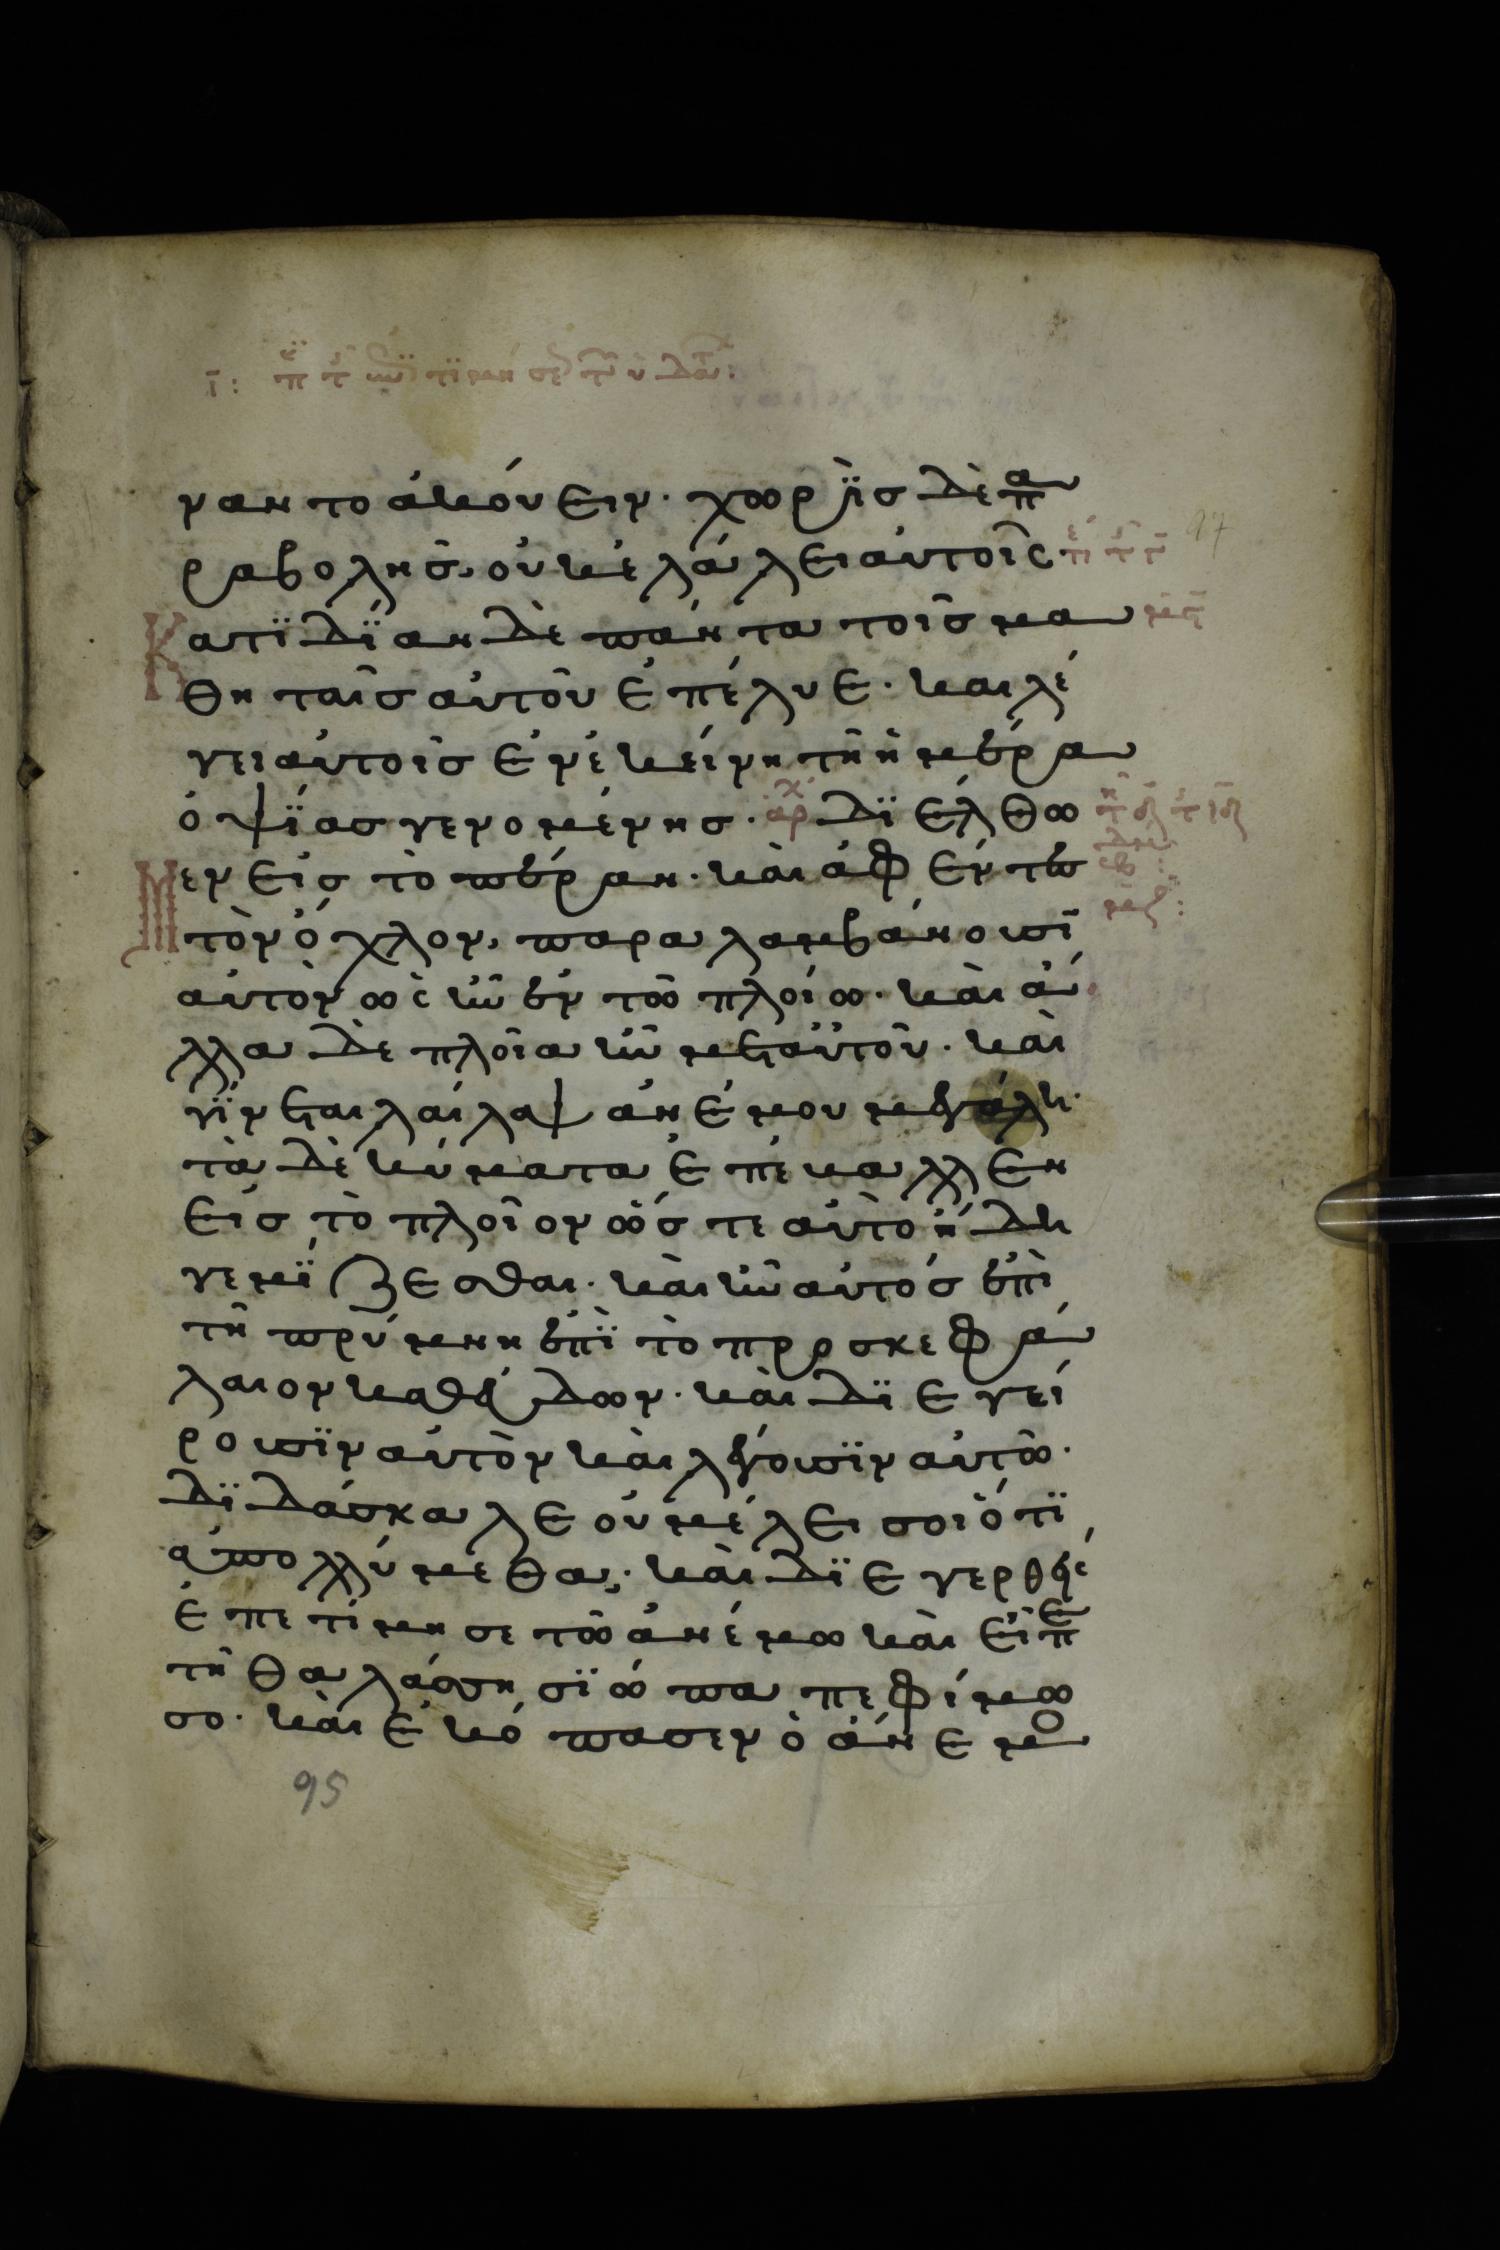 ναντο ἀκούειν· χωρῒς δὲ πα
ραβολῆς, οὐκ ἐλάλει αὐτοῖς·
Κατϊδΐαν δὲ πάντα τοῖς μα
θηταῖς αὐτοῦ ἐπέλυε· και λέ
γει αὐτοῖς ἐν ἐκείνη τῆ ἡμέρα
ὀψΐας γενομένης· ἀρχ δϊέλθω
Μεν εἰς τὸ πέραν· καὶ ἀφέντες
τὸν ὄχλον, παραλαμβάνουσϊ
αὐτὸν ὡς ἦν ἐν τῶ πλοίω· καὶ ἄ
λλα δὲ πλοῖα ἦν μεταὐτοῦ· καὶ
γΐνεται λαίλαψ ἀνέμου μεγάλη·
τὰ δὲ κύματα ἐπέκαλλεν
εἰς τὸ πλοῖον ὥστε αὐτὸ ἤδη
γεμΐζεσθαι· καὶ ἦν αὐτός ἐπὶ
τῆ πρύμνη ἐπῒ τὸ προσκεφά
λαιον καθεύδων· καὶ δϊεγεί
ρουσϊν αὐτὸν καὶ λέγουσϊν αὐτῶ·
δϊδάσκαλε οὐ μέλει σοι ὅτϊ
ἀπολλύμεθα;· καὶ δϊεγερθεὶς
ἐπετίμησε τῶ ἀνέμω καὶ εἶπε
τῆ θαλάσση σϊώπα πεφίμω
σο· καὶ ἐκόπασεν ὁ ἄνεμο
95
97